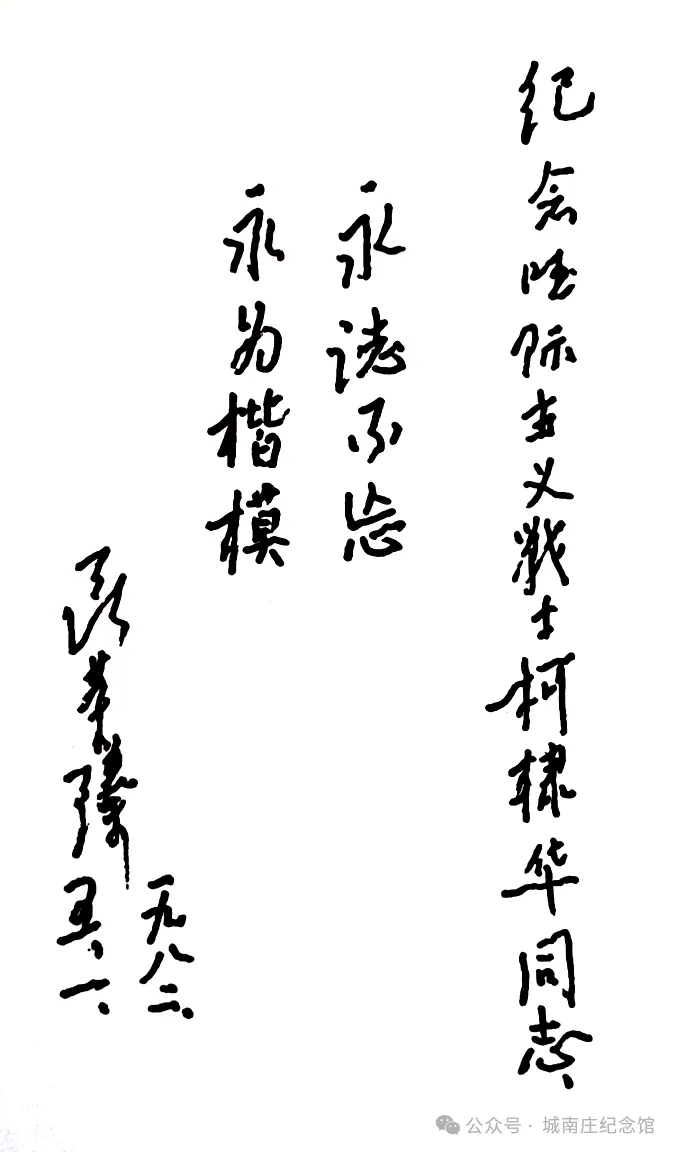 纪念国际主义战士柯棣华同志
永志不忘
永为楷模
聂荣臻
一九八二、
五、一、
公众号 · 城南庄纪念馆